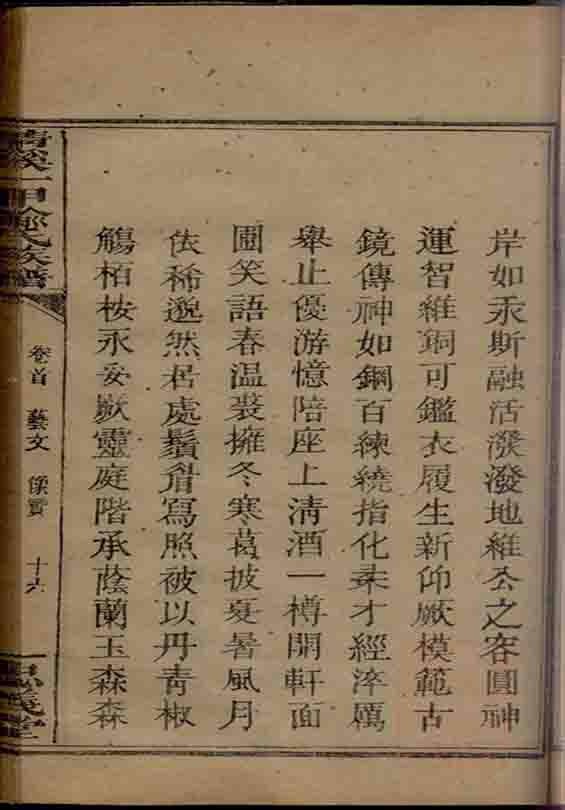 岸如汞斯融活潑潑地維公之容圓神
運智維銅可鑑衣履生新仰厥模範古
鏡傳神如鋼百練繞指化柔才經淬厲
舉止優游憶陪座上清酒一樽開軒面
圃笑語春温裘擁冬寒葛披夏暑風月
依稀邈然居處鬚眉寫照被以丹青椒
觴栢桉永妥厥靈庭階承蔭蘭玉森森
族譜
卷首
藝文
像贊
十六